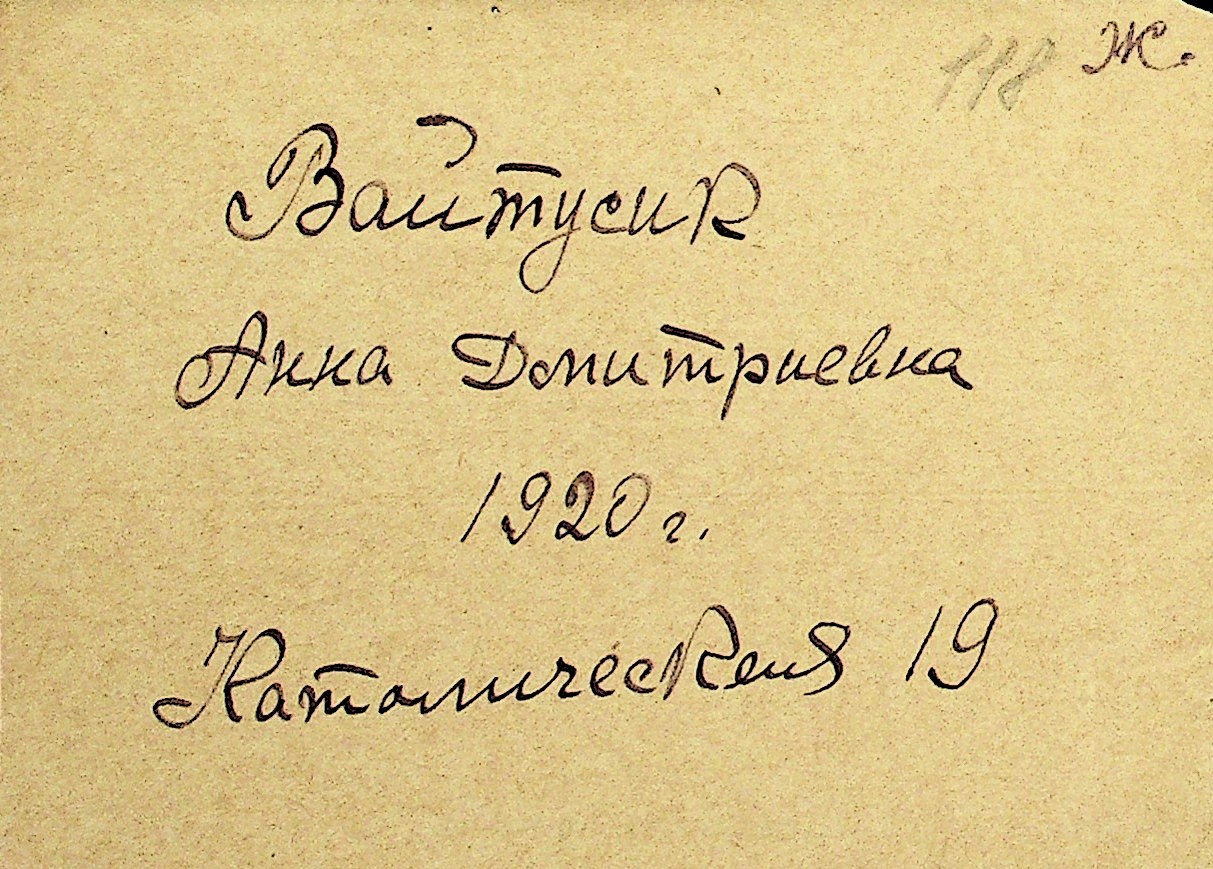 118 Ж.
Вайтусик
Анна Дмитриевна
1920 г.
Католическая 19